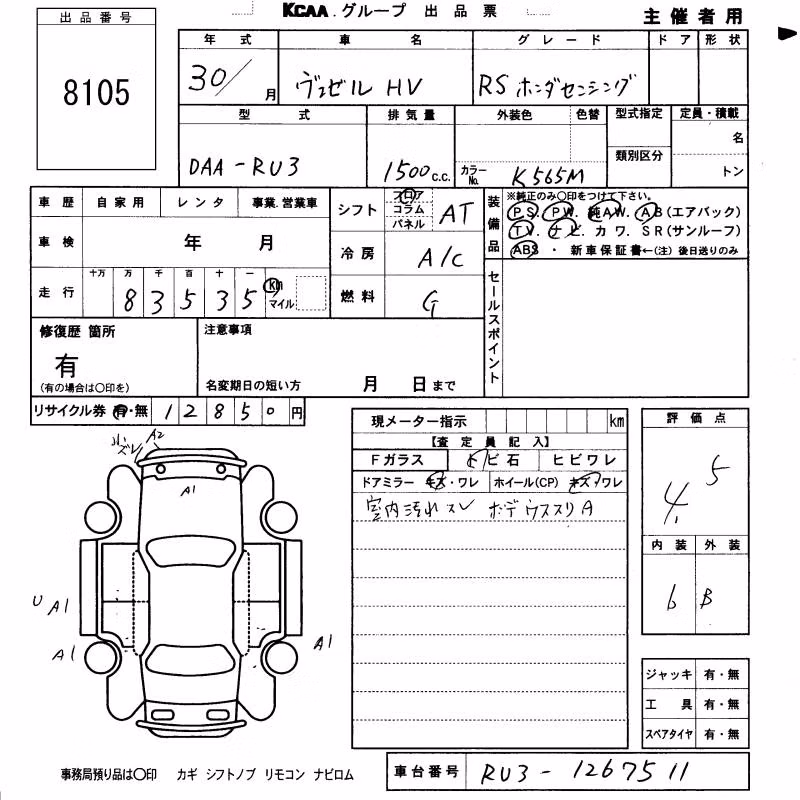 KCAA.グループ 出品票
主催者用
出品番号
8105
年式 車名 グレード ドア 形状
30/ 月 ヴェゼル HV RSホンダセンシング
型式 排気量 外装色 色替 型式指定 定員・積載
類別区分 名
DAA-RU3 1500 c.c. カラーNo. K565M トン
車歴 自家用 レンタ 事業.営業車
車検 年 月
走行 十万 万 千 百 十 一
8 3 5 3 5 km マイル
シフト フロア コラム パネル AT
冷房 A/C
燃料 G
装備品 ※純正のみ○印をつけて下さい。
PS. PW. 純AW. AB(エアバック)
TV. ナビ. カワ. SR(サンルーフ)
ABS ・ 新車保証書←(注)後日送りのみ
セールスポイント
修復歴 箇所
有
(有の場合は○印を)
注意事項
名変期日の短い方 月 日まで
リサイクル券 有・無 1 2 8 5 0 円
現メーター指示 km
【査定員記入】
Fガラス トビ石 ヒビワレ
ドアミラー キズ・ワレ ホイール(CP) キズ・ワレ
室内汚れスレ ボデーウススリA
評価点
4.5
内装 外装
b B
小ズレ A2
A1
U A1
A1
A1
ジャッキ 有・無
工具 有・無
スペアタイヤ 有・無
事務局預り品は○印 カギ シフトノブ リモコン ナビロム
車台番号 RU3-1267511